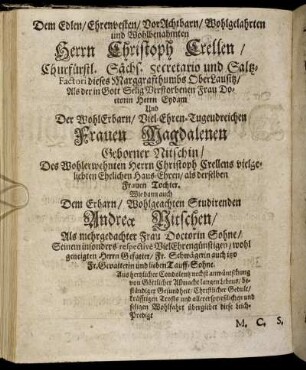 Dem Edlen/ Ehrenvesten/ VorAchtbarn/ Wohlgelahrten
und Wohlbenahmten
Herrn Christoph Crellen/
Churfürstl. Sächs. Secretario und Saltz-
Factori dieses Marggrafthumbs OberLausitz/
Als der in Gott Selig Verstorbenen Frau Do-
ctorin Herrn Eydam
Und
Der WohlErbarn/ Viel-Ehren-Tugendreichen
Frauen Magdalenen
Geborner Nitschin/
Des Wohlerwehnten Herrn Christoph Crellens vielge-
liebten Ehelichen Haus-Ehren/ als derselben
Frauen Tochter.
Wie dann auch
Dem Erbarn/ Wohlgeachten Studirenden
Andreæ Nitschen/
Als mehrgedachter Frau Doctorin Sohne/
Seinen insonders respective VielEhrengünstigen/ wohl
geneigten Herrn Gefatter/ Fr. Schwägerin auch itzo
Fr. Gevatterin und lieben Tauff-Sohne.
Aus hertzlicher Condolentz nechst anwünschung
von Göttlicher Allmacht langen Lebens/ be-
ständiger Gesundheit/ Christlicher Gedult/
kräfftigen Trosts und allerersprießlichsten und
seligen Wohlfarth übergiebet diese Leich-
Predigt
M. C. S.